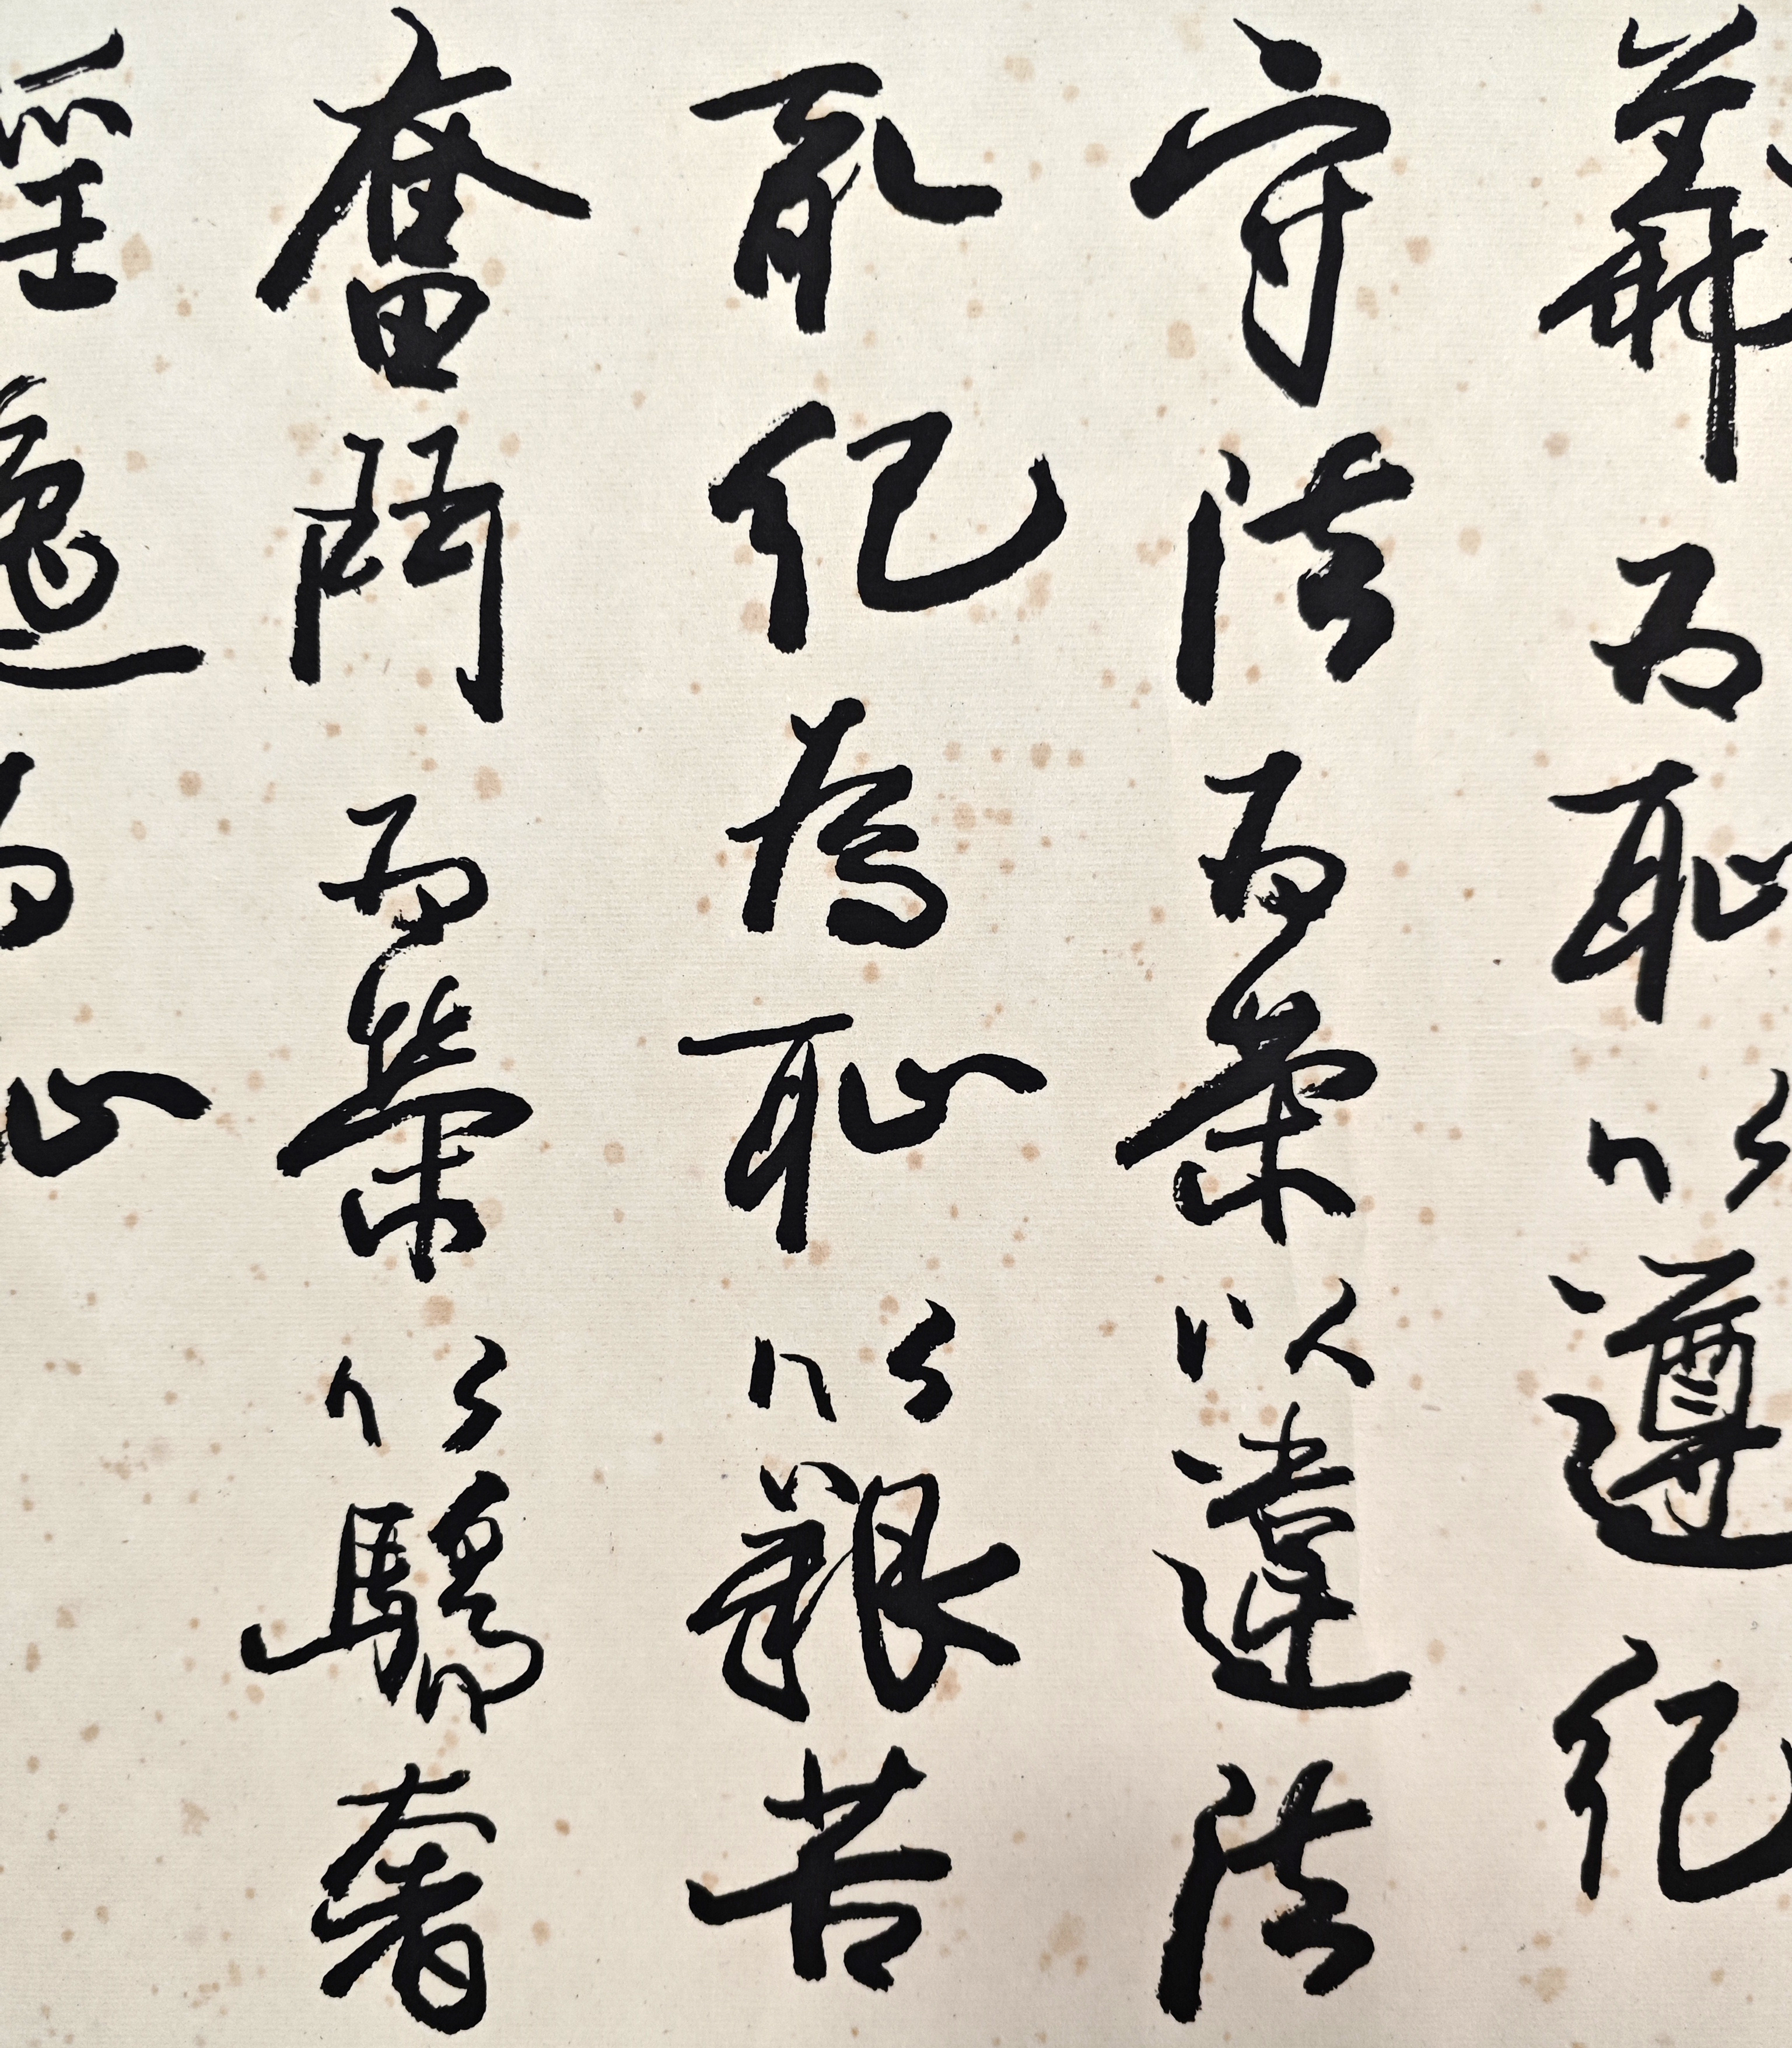 義為恥以遵紀
守法為榮以違法
亂紀為恥以艱苦
奮鬥為榮以驕奢
淫逸為恥